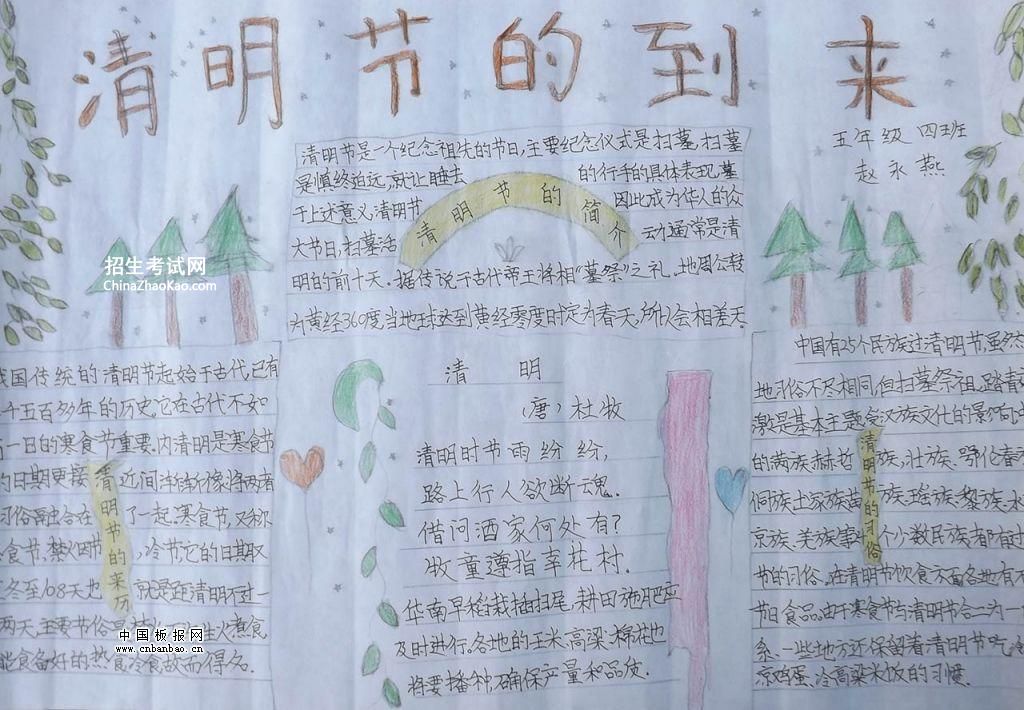 清明节的到来
五年级 四班
赵永燕
清明节是一个纪念祖先的节日,主要纪念仪式是扫墓,扫墓
是慎终追远,就让睦去 的行孝的具体表现,墓
于上述意义,清明节 因此成为华人的众
大节日,扫墓活 动通常是清
清明节的简介
明的前十天.据传说于古代帝王将相“墓祭”之礼.地周公转
为黄经360度,当地球达到黄经零度时定为春天,所以会相差天.
招生考试网
ChinaZhaoKao.com
我国传统的清明节起始于古代,已有
千五百多年的历史,它在古代不如
一日的寒食节重要.内清明是寒食节
的日期更接 近间
习俗 合在 了一起.寒食节,又称
食节,禁火节 ,冷节它的日期
冬至108天也 就是距清明不过一
两天,主要节俗是 生火煮食,
能食备好的热食冷食故而得名.
清明节的来历
中国板报网
www.cnbanbao.cn
清 明
(唐)杜牧
清明时节雨纷纷,
路上行人欲断魂.
借问酒家何处有?
牧童遵指幸花村.
华南早稻栽插扫尾,耕田施肥应
及时进行.各地的玉米高粱、棉花也
将要播种,确保产量和品质.
中国有25个民族过清明节,虽然
地习俗不尽相同,但扫墓祭祖,踏青
是基本主题.受汉族文化的影响,
的满族.赫哲 族,壮族.鄂伦春
侗族土家族苗 族.瑶族.黎族.水
京族、羌族 个少数民族都有过
节的习俗.在清明节饮食 各地有不
节日食品.由于寒食节与清明节合二为一
系.一些地方还保留着清明节吃冷
凉鸡蛋、冷高粱米饭的习惯.
清明节的习俗